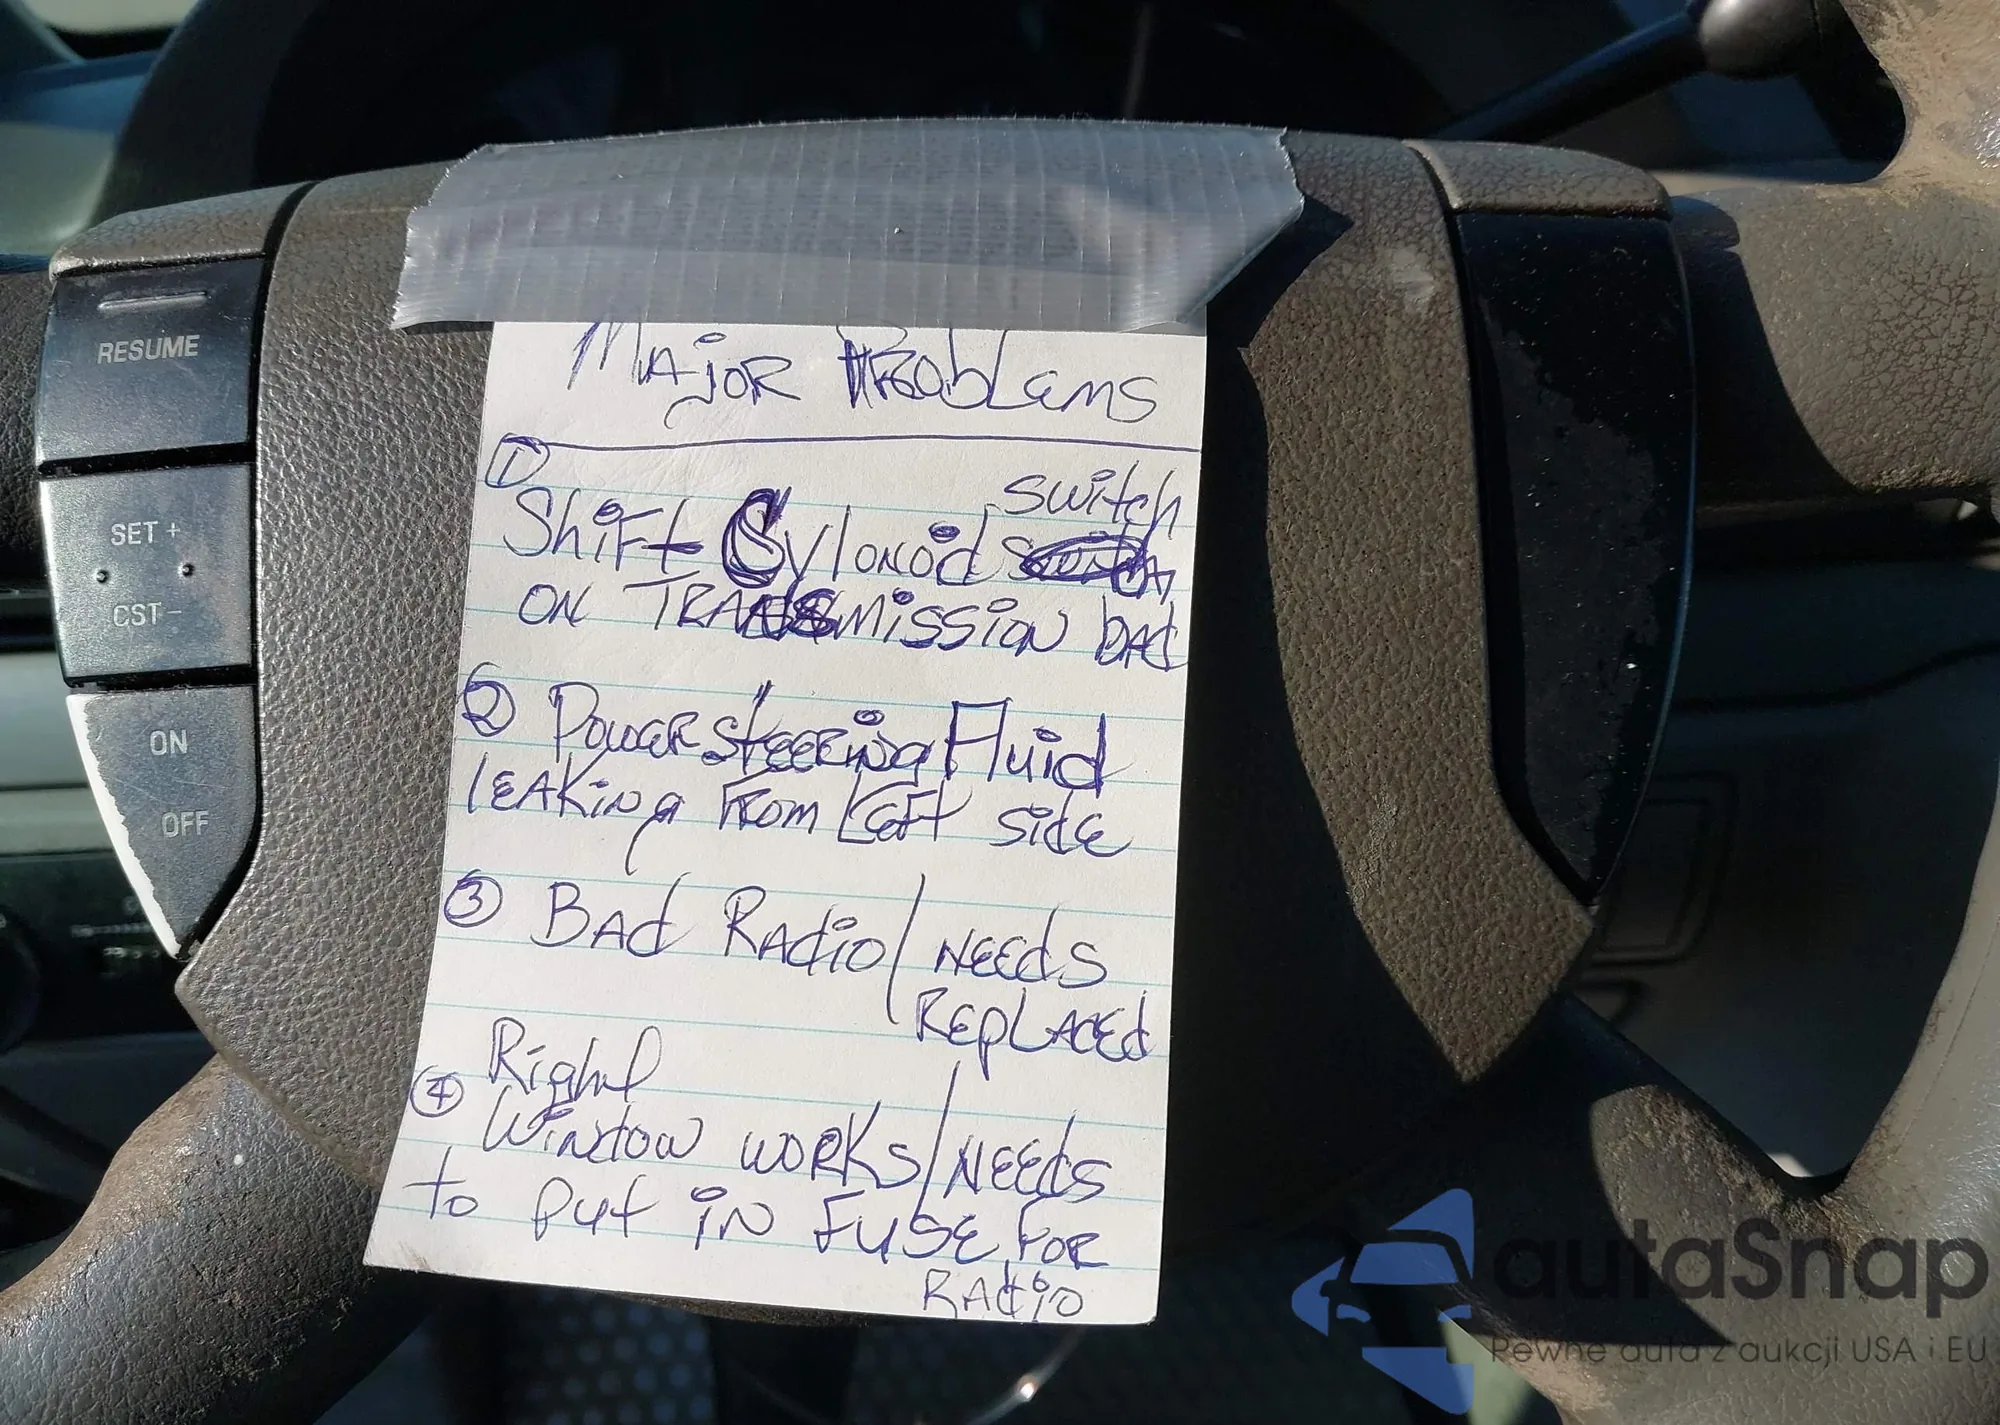 RESUME
SET +
CST -
ON
OFF
Major Problems
1
switch
Shift Sylonoid
on Transmission bad
2 Power steering Fluid
leaking From Left side
3 Bad Radio / needs
Replaced
Right
4 Window works / needs
to put in Fuse For
Radio
autaSnap
Pewne auta z aukcji USA i EU